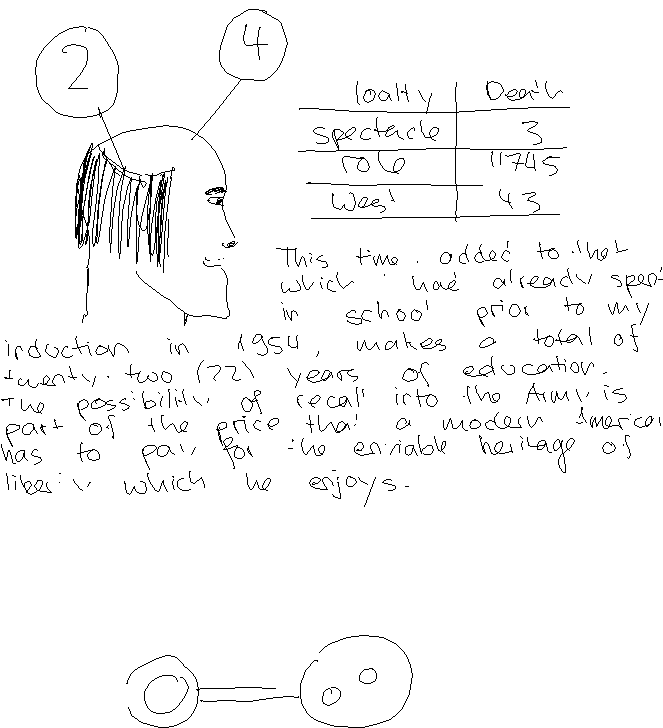 2
4
loalty Death
spectacle 3
role 11745
West 43
This time added to that
which I had already spent
in school prior to my
induction in 1954, makes a total of
twenty-two (22) years of education.
The possibility of recall into the Army is
part of the price that a modern American
has to pay for the enviable heritage of
liberty which he enjoys.